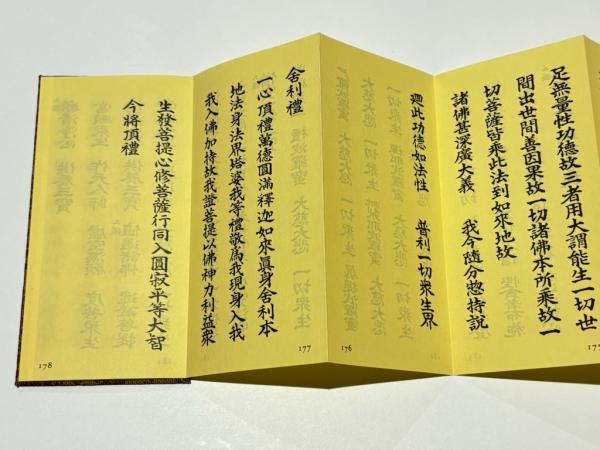 足無量性功德故三者用大謂能生一切世
間出世間善因果故一切諸佛本所乘故一
切菩薩皆乘此法到如來地故
諸佛甚深廣大義　我今隨分惣持說
廻此功德如法性　普利一切衆生界
舍利禮
一心頂禮萬德圓滿釋迦如來眞身舍利本
地法身法界塔婆我等禮敬爲我現身入我
我入佛加持故我證菩提以佛神力利益衆
生發菩提心修菩薩行同入圓寂平等大智
今將頂禮
176
177
178